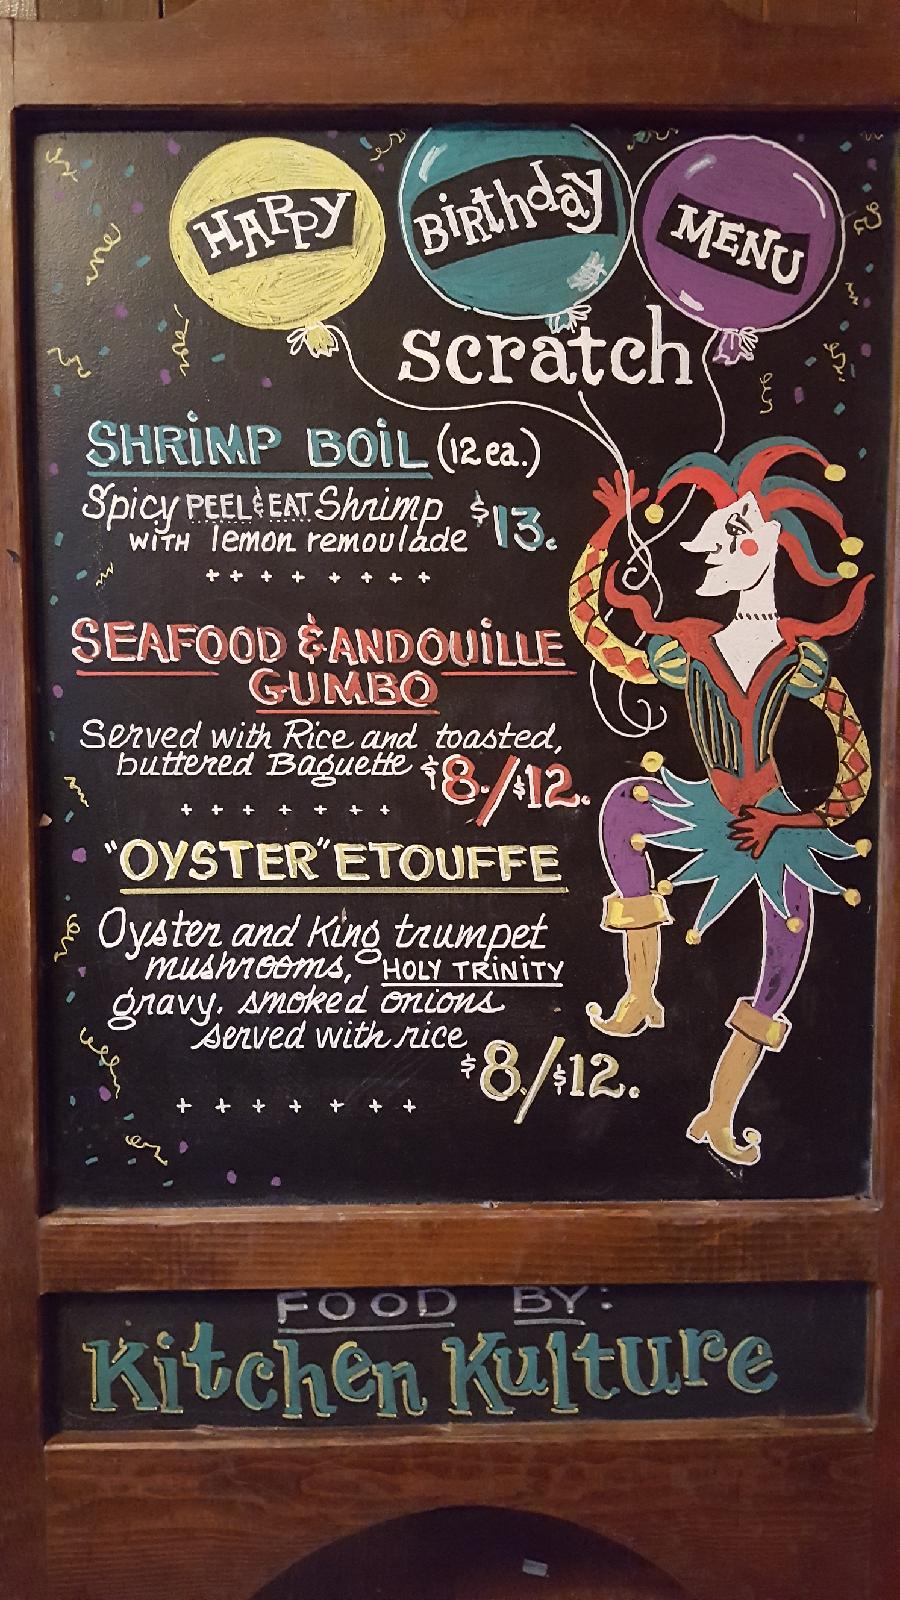 HAPPY Birthday MENU
scratch
SHRIMP BOIL (12 ea.)
Spicy PEEL & EAT Shrimp
with lemon remoulade $13.
+ + + + + + + +
SEAFOOD & ANDOUILLE
GUMBO
Served with Rice and toasted,
buttered Baguette $8./$12.
+ + + + + + +
"OYSTER" ETOUFFE
Oyster and King trumpet
mushrooms, HOLY TRINITY
gravy. smoked onions
served with rice
$8./$12.
+ + + + + + +
FOOD BY:
Kitchen Kulture